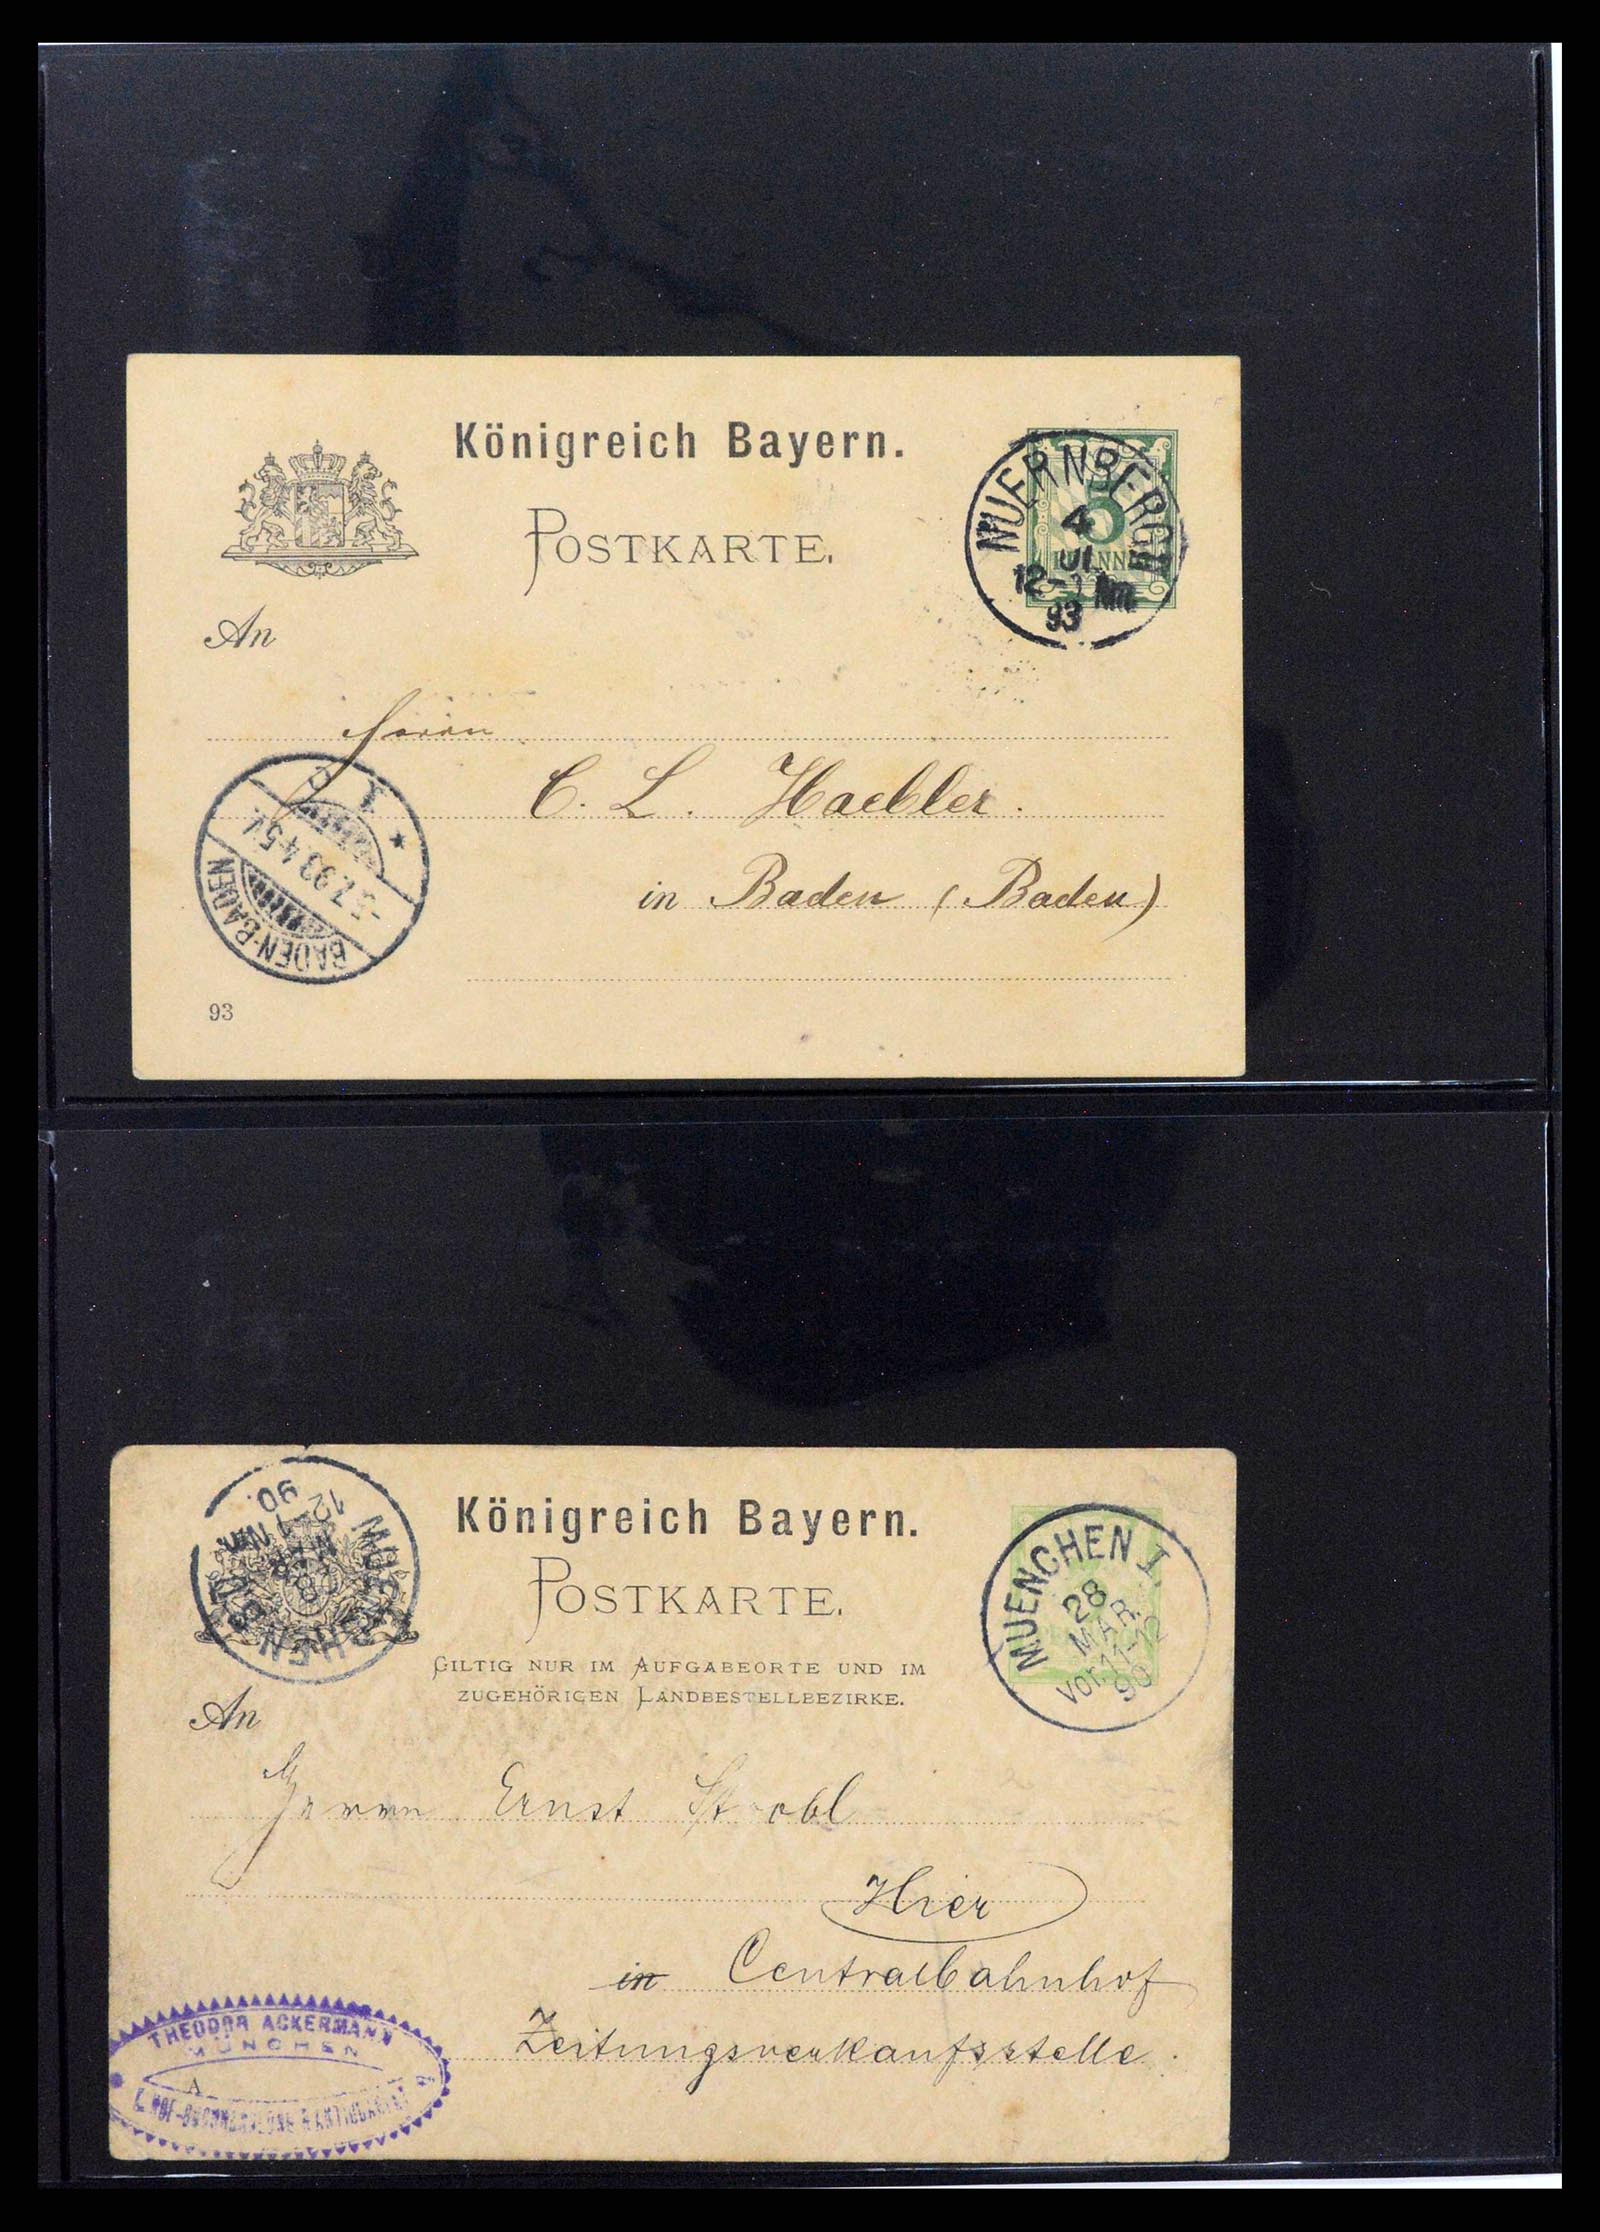 Königreich Bayern.
POSTKARTE.
NUERNBERG
4
JUL
12-1 Nm.
93
5
An
Herrn
C. L. Haebler.
in Baden (Baden)
BADEN-BADEN
5.7.93.4-5N.
93
Königreich Bayern.
POSTKARTE.
GILTIG NUR IM AUFGABEORTE UND IM
ZUGEHÖRIGEN LANDBESTELLBEZIRKE.
MUENCHEN I
28
MAR.
Vor.11-12
90
MUENCHEN
MAR
12-1 Nm.
90.
An
Herrn Ernst Strobl
Hier
in Centralbahnhof
Zeitungsverkaufsstelle.
THEODOR ACKERMANN
MÜNCHEN
A
K. HOF-BUCHHANDLUNG & ANTIQUARIAT